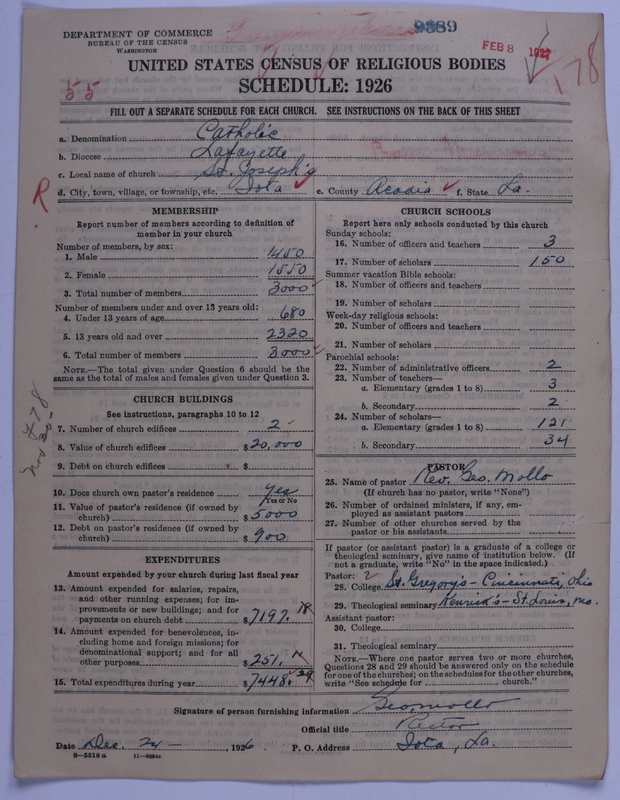 DEPARTMENT OF COMMERCE
BUREAU OF THE CENSUS
WASHINGTON
9389
FEB 8 1927
178
55
UNITED STATES CENSUS OF RELIGIOUS BODIES
SCHEDULE: 1926
FILL OUT A SEPARATE SCHEDULE FOR EACH CHURCH. SEE INSTRUCTIONS ON THE BACK OF THIS SHEET
a. Denomination Catholic
b. Diocese Lafayette
c. Local name of church St. Joseph's
d. City, town, village, or township, etc. Iota e. County Acadia f. State La.
R
MEMBERSHIP
Report number of members according to definition of
member in your church
Number of members, by sex:
1. Male 1450
2. Female 1550
3. Total number of members 3000
Number of members under and over 13 years old:
4. Under 13 years of age 680
5. 13 years old and over 2320
6. Total number of members 3000
NOTE.—The total given under Question 6 should be the
same as the total of males and females given under Question 3.
CHURCH BUILDINGS
See instructions, paragraphs 10 to 12
7. Number of church edifices 2
8. Value of church edifices $20,000
9. Debt on church edifices $
10. Does church own pastor's residence Yes
Yes or No
11. Value of pastor's residence (if owned by
church) $5000
12. Debt on pastor's residence (if owned by
church) $900
EXPENDITURES
Amount expended by your church during last fiscal year
13. Amount expended for salaries, repairs,
and other running expenses; for im-
provements or new buildings; and for
payments on church debt $7197.18
14. Amount expended for benevolences, in-
cluding home and foreign missions; for
denominational support; and for all
other purposes $251.
15. Total expenditures during year $7448.29
CHURCH SCHOOLS
Report here only schools conducted by this church
Sunday schools:
16. Number of officers and teachers 3
17. Number of scholars 150
Summer vacation Bible schools:
18. Number of officers and teachers
19. Number of scholars
Week-day religious schools:
20. Number of officers and teachers
21. Number of scholars
Parochial schools:
22. Number of administrative officers 2
23. Number of teachers—
a. Elementary (grades 1 to 8) 3
b. Secondary 2
24. Number of scholars—
a. Elementary (grades 1 to 8) 121
b. Secondary 34
PASTOR
25. Name of pastor Rev. Geo. Mollo
(If church has no pastor, write "None")
26. Number of ordained ministers, if any, em-
ployed as assistant pastors
27. Number of other churches served by the
pastor or his assistants
If pastor (or assistant pastor) is a graduate of a college or
theological seminary, give name of institution below. (If
not a graduate, write "No" in the space indicated.)
Pastor:
28. College St. Gregory's - Cincinnati, Ohio
29. Theological seminary Kenrick's - St. Louis, Mo.
Assistant pastor:
30. College
31. Theological seminary
NOTE.—Where one pastor serves two or more churches,
Questions 28 and 29 should be answered only on the schedule
for one of the churches; on the schedules for the other churches,
write "See schedule for church."
Signature of person furnishing information Geo Mollo
Official title Rector
Date Dec. 24 , 1926 P. O. Address Iota, La.
8—5518a 11—9054